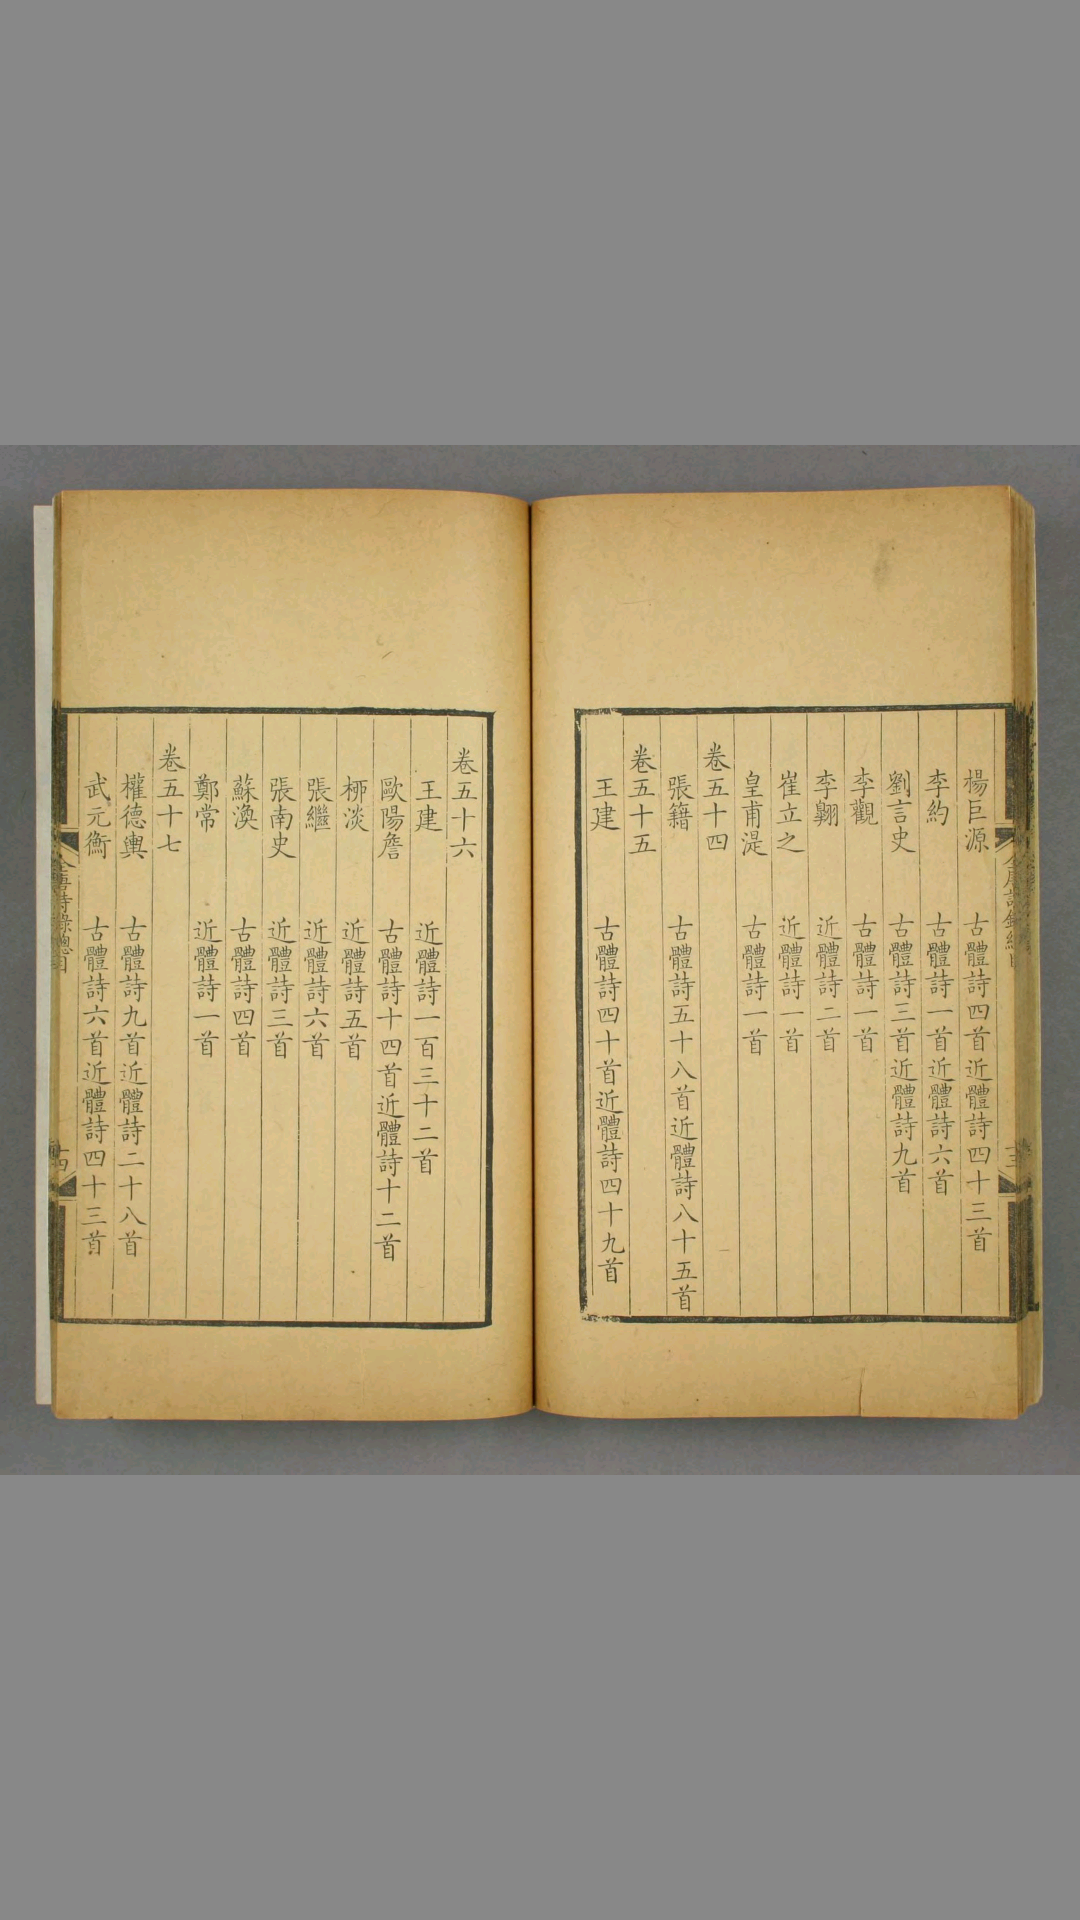 楊巨源 古體詩四首近體詩四十三首
李約 古體詩一首近體詩六首
劉言史 古體詩三首近體詩九首
李觀 古體詩一首
李翺 近體詩二首
崔立之 近體詩一首
皇甫湜 古體詩一首
卷五十四
張籍 古體詩五十八首近體詩八十五首
卷五十五
王建 古體詩四十首近體詩四十九首
卷五十六
王建 近體詩一百三十二首
歐陽詹 古體詩十四首近體詩十二首
栁淡 近體詩五首
張繼 近體詩六首
張南史 近體詩三首
蘇渙 古體詩四首
鄭常 近體詩一首
卷五十七
權德輿 古體詩九首近體詩二十八首
武元衡 古體詩六首近體詩四十三首
全唐詩錄總目
十四